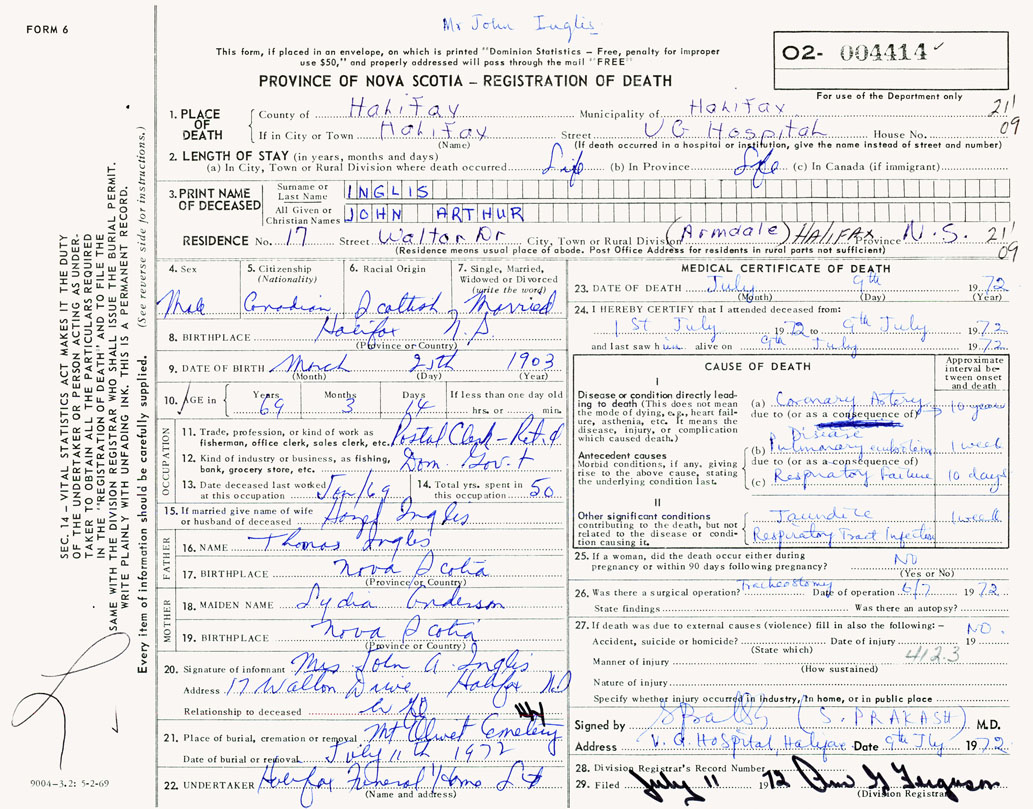 FORM 6
Mr John Inglis
This form, if placed in an envelope, on which is printed "Dominion Statistics – Free, penalty for improper
use $50," and properly addressed will pass through the mail "FREE"
PROVINCE OF NOVA SCOTIA – REGISTRATION OF DEATH
O2- 004414
For use of the Department only
1. PLACE OF DEATH
County of Halifax Municipality of Halifax 21'
If in City or Town Halifax Street V G Hospital House No. 09
(Name) (If death occurred in a hospital or institution, give the name instead of street and number)
2. LENGTH OF STAY (in years, months and days)
(a) In City, Town or Rural Division where death occurred Life (b) In Province Life (c) In Canada (if immigrant)
3. PRINT NAME OF DECEASED
Surname or Last Name INGLIS
All Given or Christian Names JOHN ARTHUR
RESIDENCE No. 17 Street Walton Dr City, Town or Rural Division (Armdale) HALIFAX Province N.S. 21'
(Residence means usual place of abode. Post Office Address for residents in rural parts not sufficient) 09
4. Sex 5. Citizenship (Nationality) 6. Racial Origin 7. Single, Married, Widowed or Divorced (write the word)
Male Canadian Scottish Married
8. BIRTHPLACE Halifax N.S.
(Province or Country)
9. DATE OF BIRTH March 25th 1903
(Month) (Day) (Year)
10. AGE in Years Months Days If less than one day old
69 3 14 hrs. or min.
OCCUPATION
11. Trade, profession or kind of work as
fisherman, office clerk, sales clerk, etc. Postal Clerk – Ret'd
12. Kind of industry or business, as fishing,
bank, grocery store, etc. Dom. Gov't
13. Date deceased last worked at this occupation Jan/69 14. Total yrs. spent in this occupation 50
15. If married give name of wife
or husband of deceased Inglis
FATHER
16. NAME Thomas Inglis
17. BIRTHPLACE Nova Scotia
(Province or Country)
MOTHER
18. MAIDEN NAME Lydia Anderson
19. BIRTHPLACE Nova Scotia
(Province or Country)
20. Signature of informant Mrs John A. Inglis
Address 17 Walton Drive Halifax N.S
Relationship to deceased
21. Place of burial, cremation or removal Mt Olivet Cemetery
Date of burial or removal July 11th 1972
22. UNDERTAKER Halifax Funeral Home Ltd
(Name and address)
MEDICAL CERTIFICATE OF DEATH
23. DATE OF DEATH July 9th 1972
(Month) (Day) (Year)
24. I HEREBY CERTIFY that I attended deceased from:
1st July 1972 to 9th July 1972
and last saw him alive on 9th July 1972
CAUSE OF DEATH
Approximate interval between onset and death
I
Disease or condition directly leading to death (This does not mean
the mode of dying, e.g., heart failure, asthenia, etc. It means the
disease, injury, or complication
which caused death.)
(a) Coronary Artery 10 years
due to (or as a consequence of)
Disease
Antecedent causes
Morbid conditions, if any, giving
rise to the above cause, stating
the underlying condition last.
(b) Pulmonary embolism 1 week
due to (or as a consequence of)
(c) Respiratory Failure 10 days
II
Other significant conditions
contributing to the death, but not
related to the disease or condition causing it.
Jaundice 1 week
Respiratory Tract Infection
25. If a woman, did the death occur either during
pregnancy or within 90 days following pregnancy? NO
(Yes or No)
26. Was there a surgical operation? Tracheostomy Date of operation 6/7 1972
State findings Was there an autopsy?
27. If death was due to external causes (violence) fill in also the following: – NO.
Accident, suicide or homicide? Date of injury 19
(State which) 412.3
Manner of injury
(How sustained)
Nature of injury
Specify whether injury occurred in industry, in home, or in public place
Signed by (S. PRAKASH) M.D.
Address V. G. Hospital, Halifax Date 9th Jly 1972
28. Division Registrar's Record Number
29. Filed July 11 1972 Ferguson
(Division Registrar)
SEC. 14 – VITAL STATISTICS ACT MAKES IT THE DUTY
OF THE UNDERTAKER OR PERSON ACTING AS UNDERTAKER TO OBTAIN ALL THE PARTICULARS REQUIRED
IN THE "REGISTRATION OF DEATH" AND TO FILE THE
SAME WITH THE DIVISION REGISTRAR WHO SHALL ISSUE THE BURIAL PERMIT.
WRITE PLAINLY WITH UNFADING INK. THIS IS A PERMANENT RECORD.
Every item of information should be carefully supplied. (See reverse side for instructions.)
9004-3.2: 5-2-69